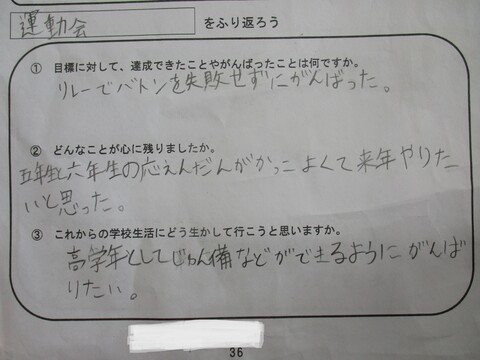 運動会 をふり返ろう
① 目標に対して、達成できたことやがんばったことは何ですか。
リレーでバトンを失敗せずにがんばった。
② どんなことが心に残りましたか。
五年生と六年生の応えんだんがかっこよくて来年やりた
いと思った。
③ これからの学校生活にどう生かして行こうと思いますか。
高学年としてじゅん備などができるようにがんば
りたい。
36